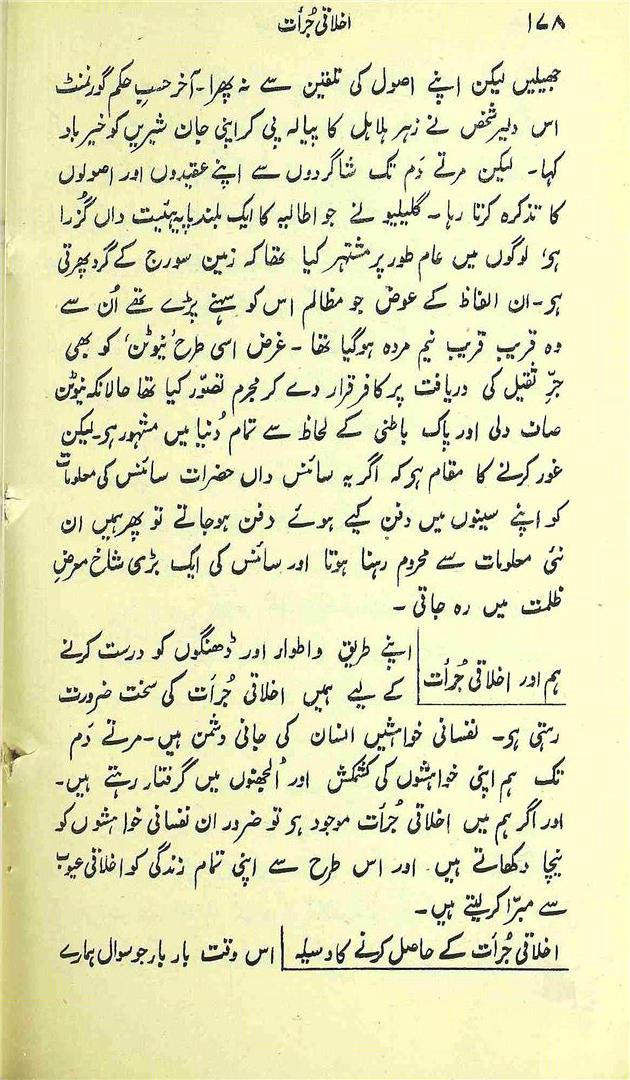 ۱۷۸
اخلاقی جُرأت
جھیلیں لیکن اپنے اصول کی تلقین سے نہ پھرا۔ آخر حسبِ حکم گورنمنٹ
اس دلیر شخص نے زہر ہلاہل کا پیالہ پی کر اپنی جان شیریں کو خیر باد
کہا۔ لیکن مرتے دَم تک شاگردوں سے اپنے عقیدوں اور اصولوں
کا تذکرہ کرتا رہا۔ گلیلیو نے جو اطالیہ کا ایک بلند پایہ ہیئت داں گُزرا
ہو، لوگوں میں عام طور پر مشتہر کیا تھا کہ زمین سورج کے گرد پھرتی
ہو۔ ان الفاظ کے عوض جو مظالم اس کو سہنے پڑے تھے اُن سے
وہ قریب قریب نیم مردہ ہوگیا تھا۔ غرض اسی طرح 'نیوٹن' کو بھی
جرِّ ثقیل کی دریافت پر کافر قرار دے کر مجرم تصوّر کیا تھا حالانکہ نیوٹن
صاف دلی اور پاک باطنی کے لحاظ سے تمام دُنیا میں مشہور ہو۔ لیکن
غور کرنے کا مقام ہو کہ اگر یہ سائنس داں حضرات سائنس کی معلومات
کو اپنے سینوں میں دفن کیے ہوئے دفن ہوجاتے تو پھر ہمیں ان
نئی معلومات سے محروم رہنا ہوتا اور سائنس کی ایک بڑی شاخ معرضِ
ظلمت میں رہ جاتی۔
ہم اور اخلاقی جُرأت
اپنے طریق و اطوار اور ڈھنگوں کو درست کرنے
کے لیے ہمیں اخلاقی جُرأت کی سخت ضرورت
رہتی ہو۔ نفسانی خواہشیں انسان کی جانی دشمن ہیں۔ مرتے دَم
تک ہم اپنی خواہشوں کی کشمکش اور اُلجھنوں میں گرفتار رہتے ہیں۔
اور اگر ہم میں اخلاقی جُرأت موجود ہو تو ضرور ان نفسانی خواہشوں کو
نیچا دکھاتے ہیں اور اس طرح سے اپنی تمام زندگی کو اخلاقی عیوب
سے مبرّا کرلیتے ہیں۔
اخلاقی جُرأت کے حاصل کرنے کا وسیلہ اس وقت بار بار جو سوال ہمارے